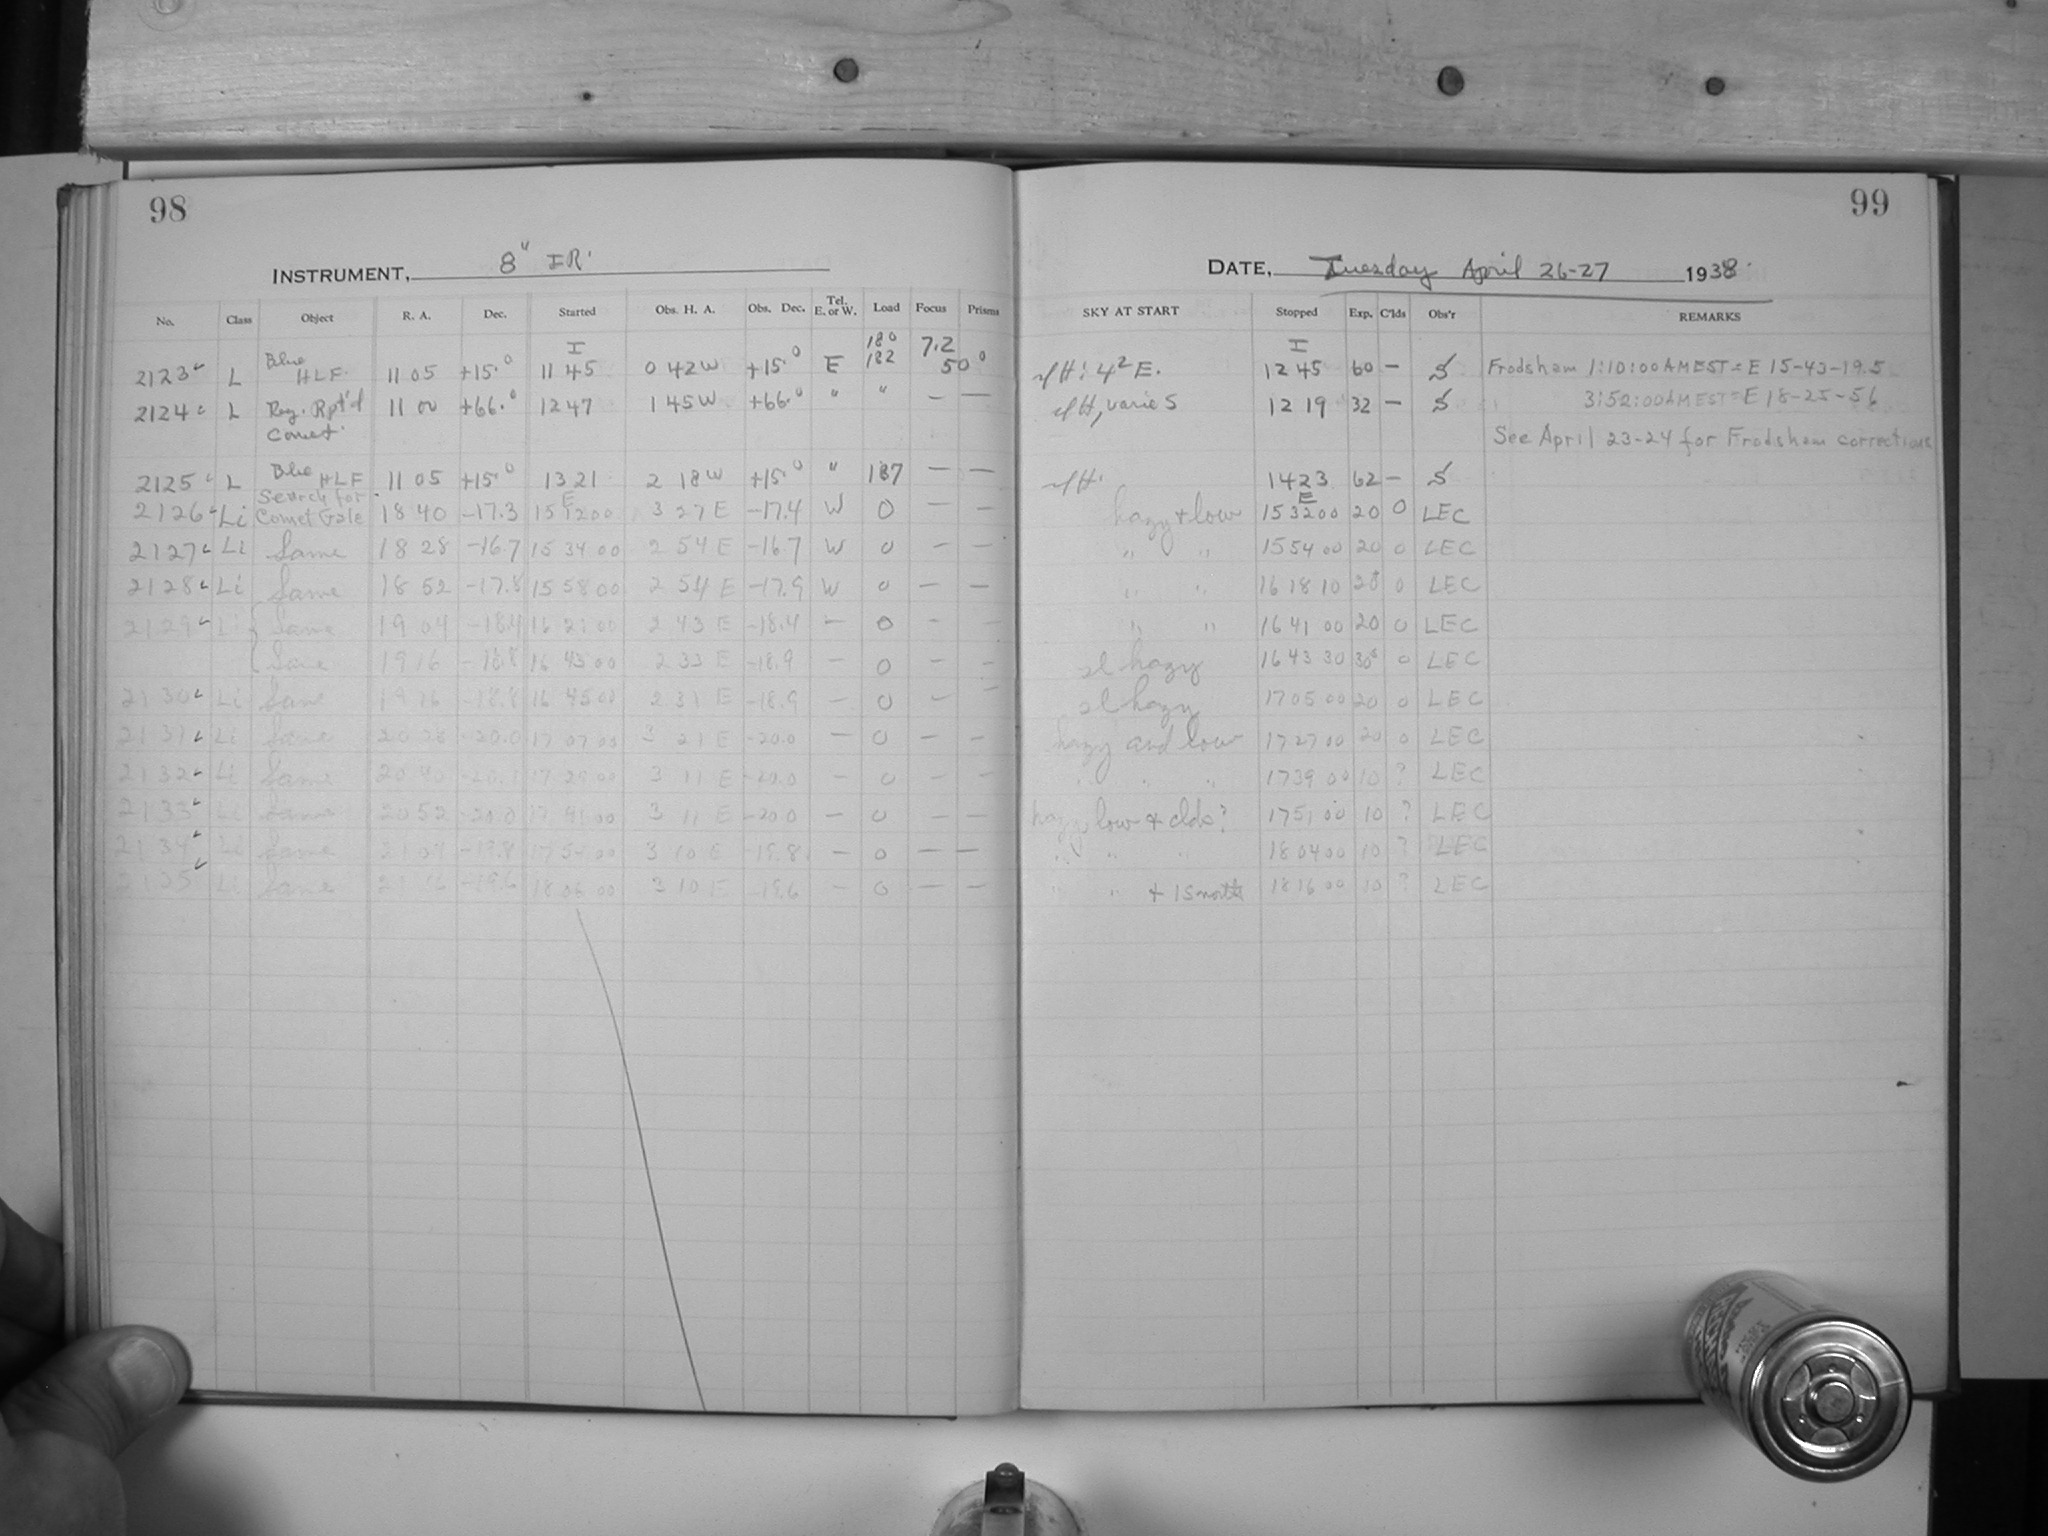 98
INSTRUMENT, 8" IR.
No. Class Object R. A. Dec. Started Obs. H. A. Obs. Dec. Tel. E. or W. Load Focus Prisms
I 180 7.2
2123 L Blue HLF. 11 05 +15.0 11 45 0 42 W +15.0 E 182 50°
2124 L Reg. Rpt'd 11 00 +66.0 12 47 1 45 W +66.0 " " — —
Comet.
2125 L Blue HLF 11 05 +15.0 13 21 2 18 W +15.0 " 187 — —
Search for E
2126 Li Comet Gale 18 40 -17.3 15 12 00 3 27 E -17.4 W 0 — —
2127 Li Same 18 28 -16.7 15 34 00 2 54 E -16.7 W 0 — —
2128 Li Same 18 52 -17.8 15 58 00 2 54 E -17.9 W 0 — —
2129 Li Same 19 04 -18.4 16 21 00 2 43 E -18.4 — 0 — —
Same 19 16 -18.8 16 43 00 2 33 E -18.9 — 0 — —
2130 Li Same 19 16 -18.8 16 45 00 2 31 E -18.9 — 0 — —
2131 Li Same 20 28 -20.0 17 07 00 3 21 E -20.0 — 0 — —
2132 Li Same 20 40 17 29 00 3 11 E -20.0 — 0 — —
2133 Li Same 20 52 -20.0 17 41 00 3 11 E -20.0 — 0 — —
2134 Li Same 21 04 -19.8 17 54 00 3 10 E -19.8 — 0 — —
2135 Li Same 21 16 -19.6 18 06 00 3 10 E -19.6 — 0 — —
99
DATE, Tuesday April 26-27 1938.
SKY AT START Stopped Exp. C'lds Obs'r REMARKS
I
H: 4² E. 12 45 60 — S Frodsham 1:10:00 AM EST = E 15-43-19.5
H, varies 12 19 32 — S 3:52:00 AM EST = E 18-25-56
See April 23-24 for Frodsham corrections
H. 14 23 62 — S
E
hazy + low 15 32 00 20 0 LEC
" " 15 54 00 20 0 LEC
" " 16 18 10 20 0 LEC
" " 16 41 00 20 0 LEC
sl hazy 16 43 30 30s 0 LEC
sl hazy 17 05 00 20 0 LEC
hazy and low 17 27 00 20 0 LEC
" " " 17 39 00 10 ? LEC
hazy, low + clds? 17 51 00 10 ? LEC
" " " 18 04 00 10 ? LEC
" " + 18 16 00 10 ? LEC